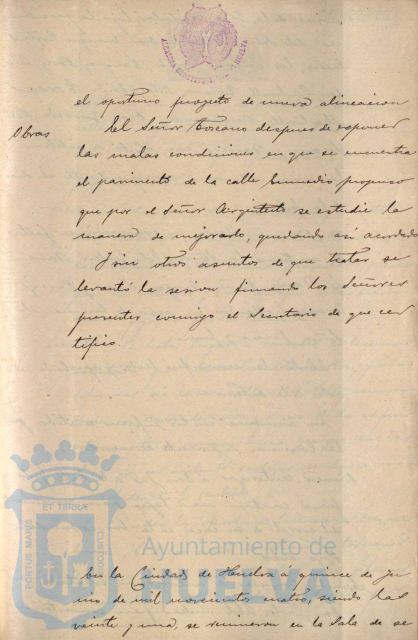 el oportuno proyecto de nueva alineacion
Obras
El Señor Toscano despues de esponer
las malas condiciones en que se encuentra
el pavimento de la calle Enmedio propuso
que por el Señor Arquitecto se estudie la
manera de mejorarlo, quedando así acordado
Y sin otros asuntos de que tratar se
levantó la sesion firmando los Señores
presentes conmigo el Secretario de que cer
tifico.
PORTUS MARIS ET TERRÆ CUSTODIA
Ayuntamiento de
HUELVA
En la Ciudad de Huelva á quince de Ju
nio de mil novecientos cuatro, siendo las
veinte y una, se reunieron en la Sala de se